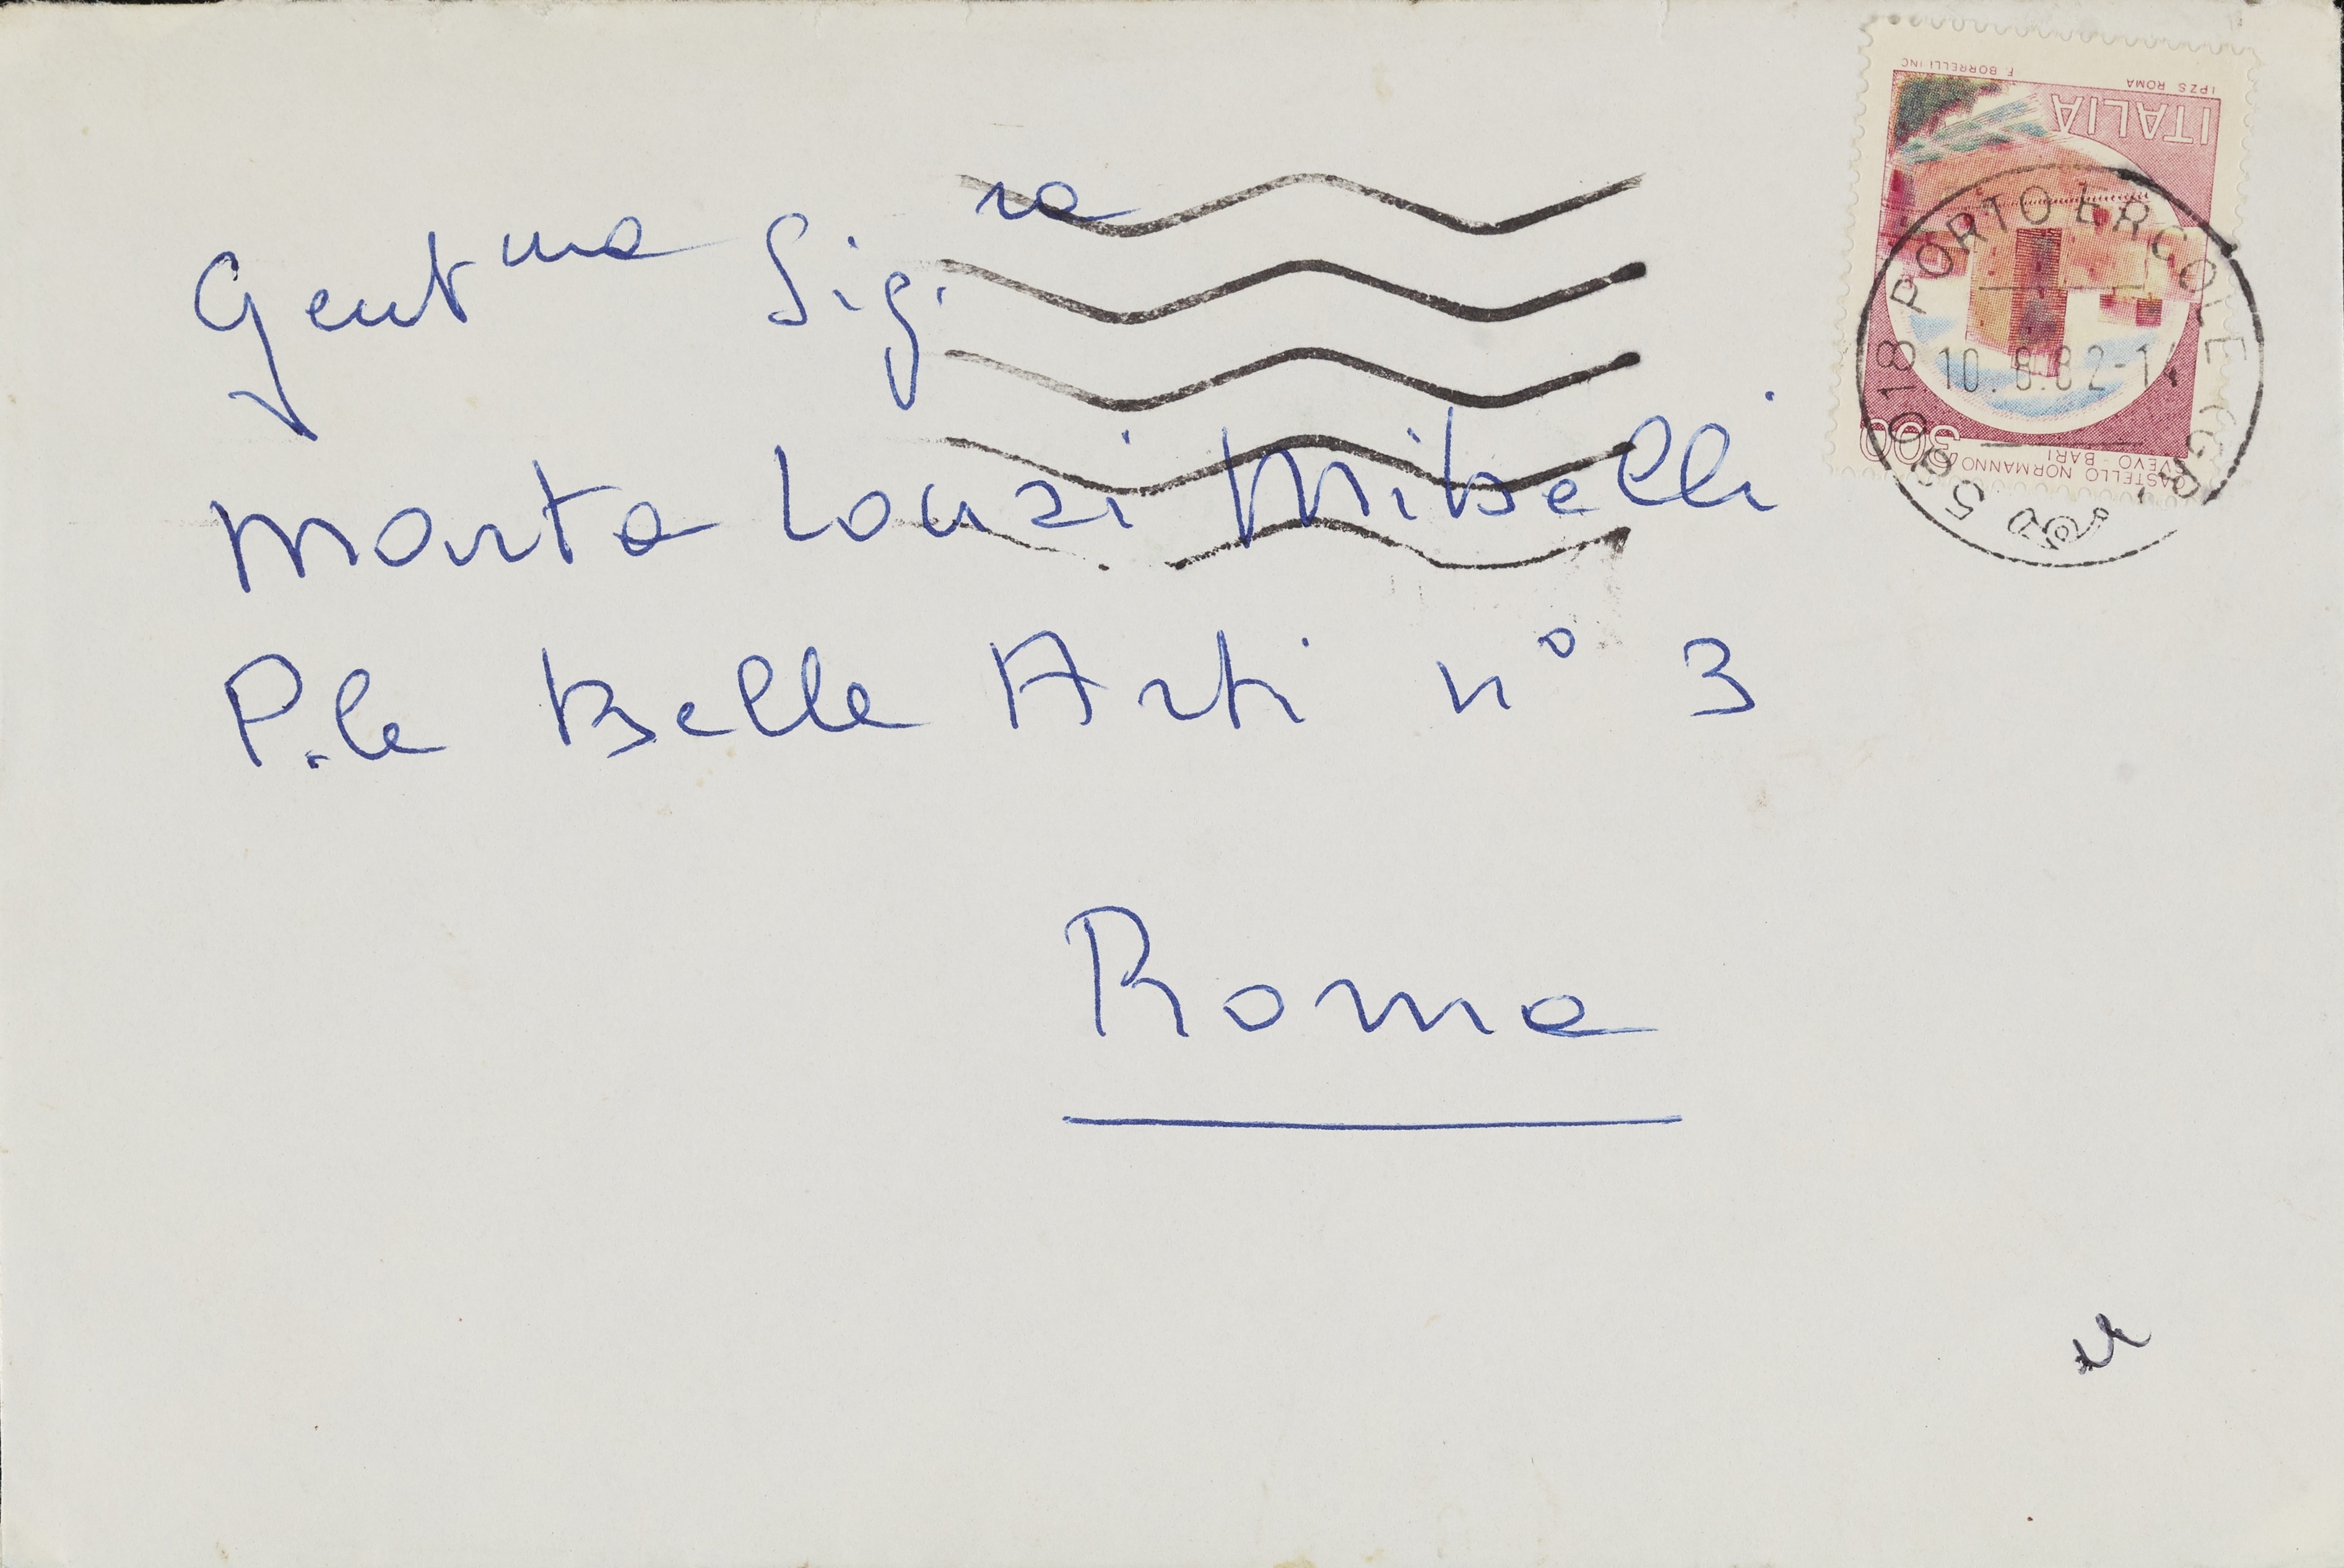 Gent.ma Sig.ra
Marta Lonzi Mibelli
P.le Belle Arti n° 3
Roma
F. BORRELLI INC.
I.P.Z.S. ROMA
ITALIA
300
CASTELLO NORMANNO
SVEVO - BARI
58018 PORTO ERCOLE (GR)
82-1